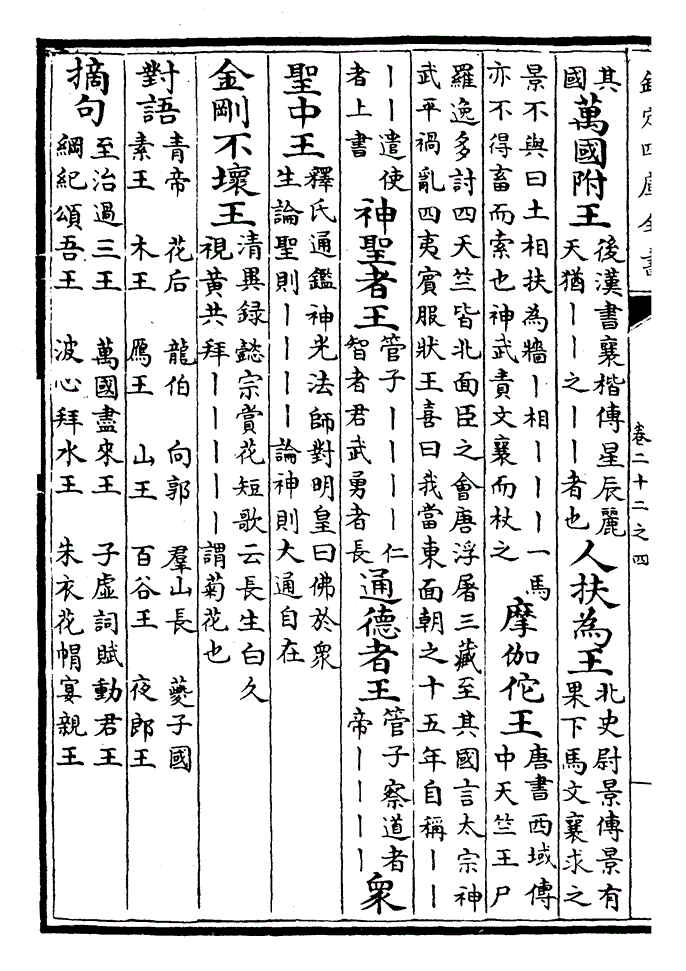 欽定四庫全書
卷二十二之四
其
國
萬國附王
後漢書襄楷傳星辰麗
天猶丨丨之丨丨者也
人扶為王
北史尉景傳景有
果下馬文襄求之
景不與曰土相扶為牆丨相丨丨丨一馬
亦不得畜而索也神武責文襄而杖之
摩伽佗王
唐書西域傳
中天竺王尸
羅逸多討四天竺皆北面臣之會唐浮屠三藏至其國言太宗神
武平禍亂四夷賓服狀王喜曰我當東面朝之十五年自稱丨丨
丨丨遣使
者上書
神聖者王
管子丨丨丨丨仁
智者君武勇者長
通德者王
管子察道者
帝丨丨丨丨
衆
聖中王
釋氏通鑑神光法師對明皇曰佛於衆
生論聖則丨丨丨丨論神則大通自在
金剛不壞王
清異録懿宗賞花短歌云長生白久
視黃共拜丨丨丨丨丨謂菊花也
對語
青帝 花后 龍伯 向郭 羣山長 夔子國
素王 木王 鴈王 山王 百谷王 夜郎王
摘句
至治過三王 萬國盡來王 子虛詞賦動君王
綱紀頌吾王 波心拜水王 朱衣花帽宴親王